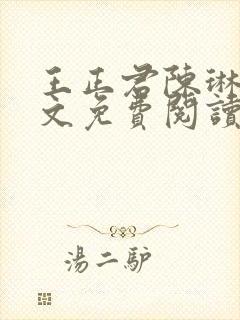 王正君陳琳
文免費閱讀
湯二驴